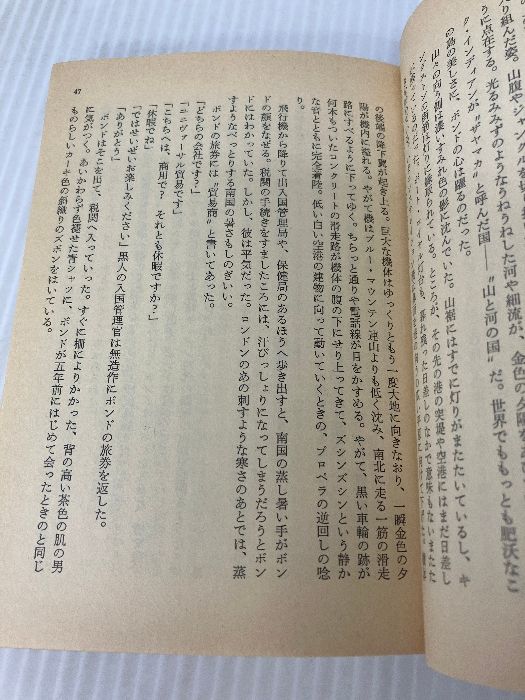 り組んだ姿。山腹やジャ
うに点在する。光るみみずのようなうねうねした河や細流が、金色の夕陽
ク・インディアンが〝ザイマカ〟と呼んだ国――〝山と河の国〟だ。世界でももっとも肥沃なこ
の島の美しさに、ボンドの心は躍るのだった。
山々の向う側は濃いすみれ色の影に沈んでいた。山裾にはすでに灯りがまたたいているし、キ
ところが、その先の港の突堤や空港にはまだ日差し
の後端の降下翼が起き上る。巨大な機体はゆっくりともう一度大地に向きなおり、一瞬金色の夕
陽が機内に溢れる。やがて機はブルー・マウンテン連山よりも低く沈み、南北に走る一筋の滑走
路にすべるように下ってゆく。ちらっと通りや電話線が目をかすめる。やがて、黒い車輪の跡が
何本もついたコンクリートの滑走路が機体の腹の下にせり上ってきて、ズシンズシンという静か
な音とともに完全着陸。低い白い空港の建物に向って動いていくときの、プロペラの逆回しの唸
り。
飛行機から降りて出入国管理局や、保健局のあるほうへ歩き出すと、南国の蒸し暑い手がボン
ドの顔をなぜる。税関の手続きをすましたころには、汗びっしょりになってしまうだろうとボン
ドにはわかっていた。しかし、彼は平気だった。ロンドンのあの刺すような寒さのあとでは、蒸
すようなべっとりする南国の暑さもしのぎいい。
ボンドの旅券には〝貿易商〟と書いてあった。
「どちらの会社です?」
「ユニヴァーサル貿易です」
「こちらへは、商用で? それとも休暇ですか?」
「休暇でね」
「ではせいぜいお楽しみください」黒人の入国管理官は無造作にボンドの旅券を返した。
「ありがとう」
ボンドはそこを出て、税関へ入っていった。すぐに柵によりかかった、背の高い茶色の肌の男
に気がつく。あいかわらず色褪せた青シャツに、ボンドが五年前にはじめて会ったときのと同じ
ものらしいカーキ色の斜織りのズボンをはいている。
47